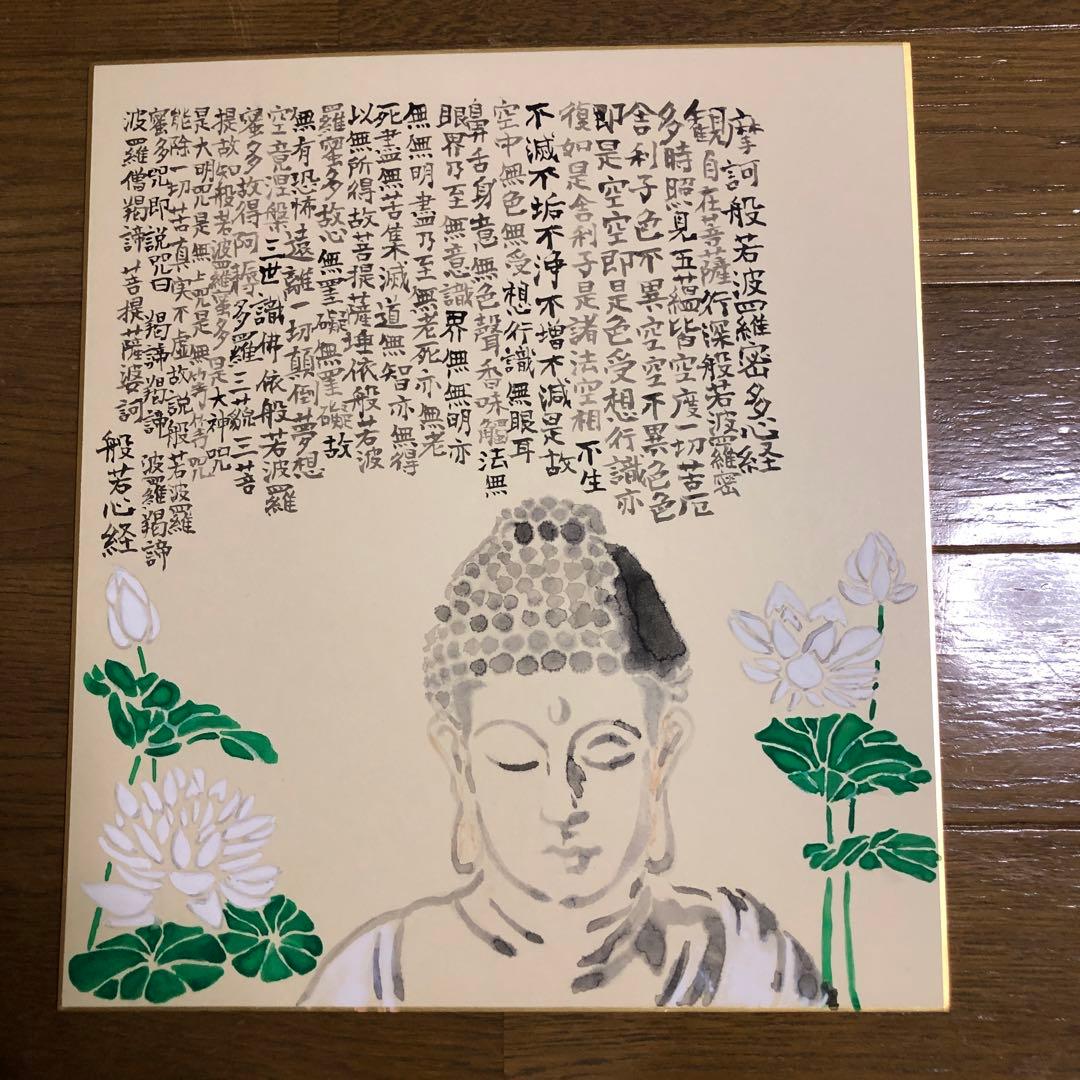 摩訶般若波羅密多心経
観自在菩薩行深般若波羅密
多時照見五蘊皆空度一切苦厄
舎利子色不異空空不異色色
即是空空即是色受想行識亦
復如是舎利子是諸法空相不生
不滅不垢不浄不増不減是故
空中無色無受想行識無眼耳
鼻舌身意無色聲香味觸法無
眼界乃至無意識界無無明亦
無無明盡乃至無老死亦無老
死盡無苦集滅道無知亦無得
以無所得故菩提薩埵依般若波
羅蜜多故心無罣礙無罣礙故
無有恐怖遠離一切顛倒夢想
空竟涅槃三世識佛依般若波羅
蜜多故得阿耨多羅三藐三菩
提故知般若波羅蜜多是大神呪
是大明呪是無上呪是無等等呪
能除一切苦真実不虚故説般若波羅
蜜多呪即説呪曰 羯諦羯諦 波羅羯諦
波羅僧羯諦 菩提薩婆訶 般若心経